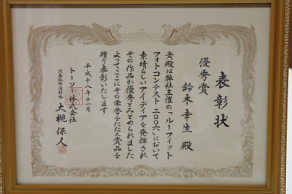 表彰状
優秀賞
鈴木幸生 殿
貴殿は弊社主催の「ルーフィット
フォトコンテスト二〇〇六」において
素晴らしいアイディアを発揮され
その作品が優秀とみとめられました
よってここにその栄誉をたたえ賞品を
贈り表彰いたします
平成十八年十一月
トーソー株式会社
大槻保人